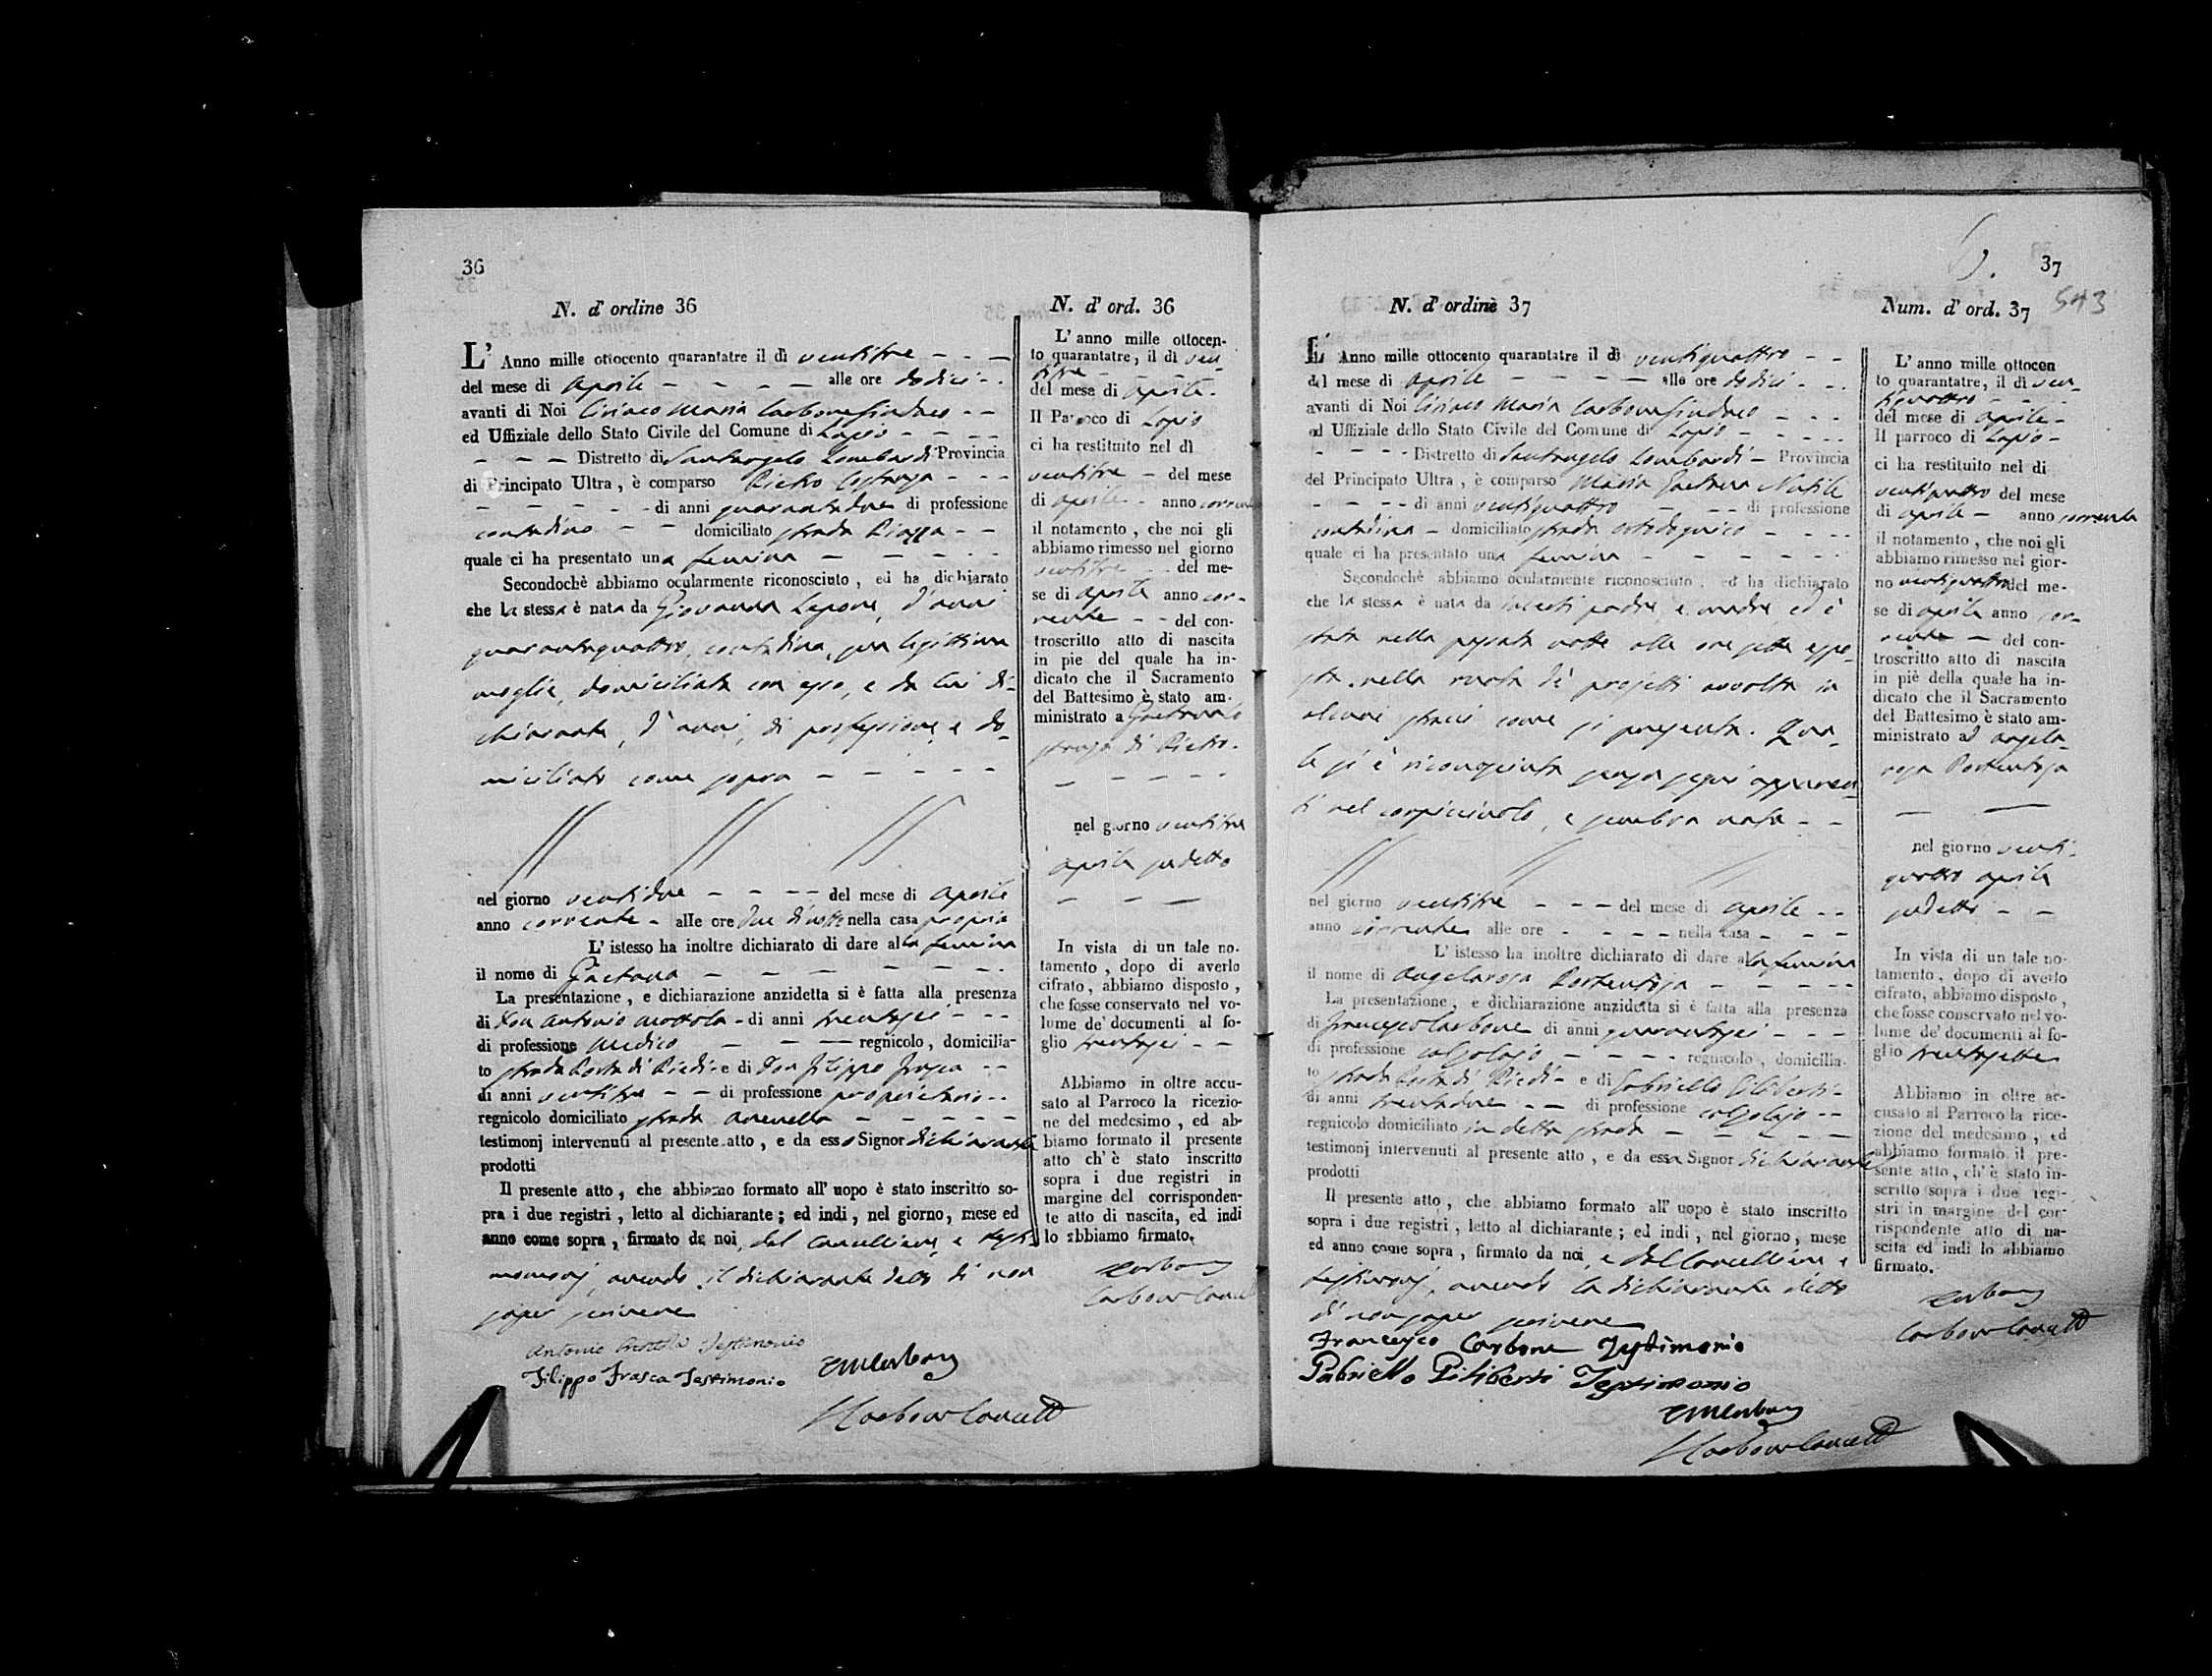 36
N. d' ordine 36
L' Anno mille ottocento quarantatre il dì ventitre
del mese di Aprile alle ore dodici
avanti di Noi Ciriaco Maria Carbone Sindaco
ed Uffiziale dello Stato Civile del Comune di Lapio
Distretto di Santangelo Lombardi Provincia
di Principato Ultra, è comparso Pietro
di anni quarantadue di professione
contadino domiciliato strada Piazza
quale ci ha presentato una femina
Secondochè abbiamo ocularmente riconosciuto, ed ha dichiarato
che la stessa è nata da Giovanna Lepore, d'anni
quarantaquattro, contadina, sua legittima
moglie, domiciliata con esso, e da lui di-
chiarante, d'anni, di professione, e do-
miciliato come sopra
nel giorno ventidue del mese di Aprile
anno corrente alle ore due di notte nella casa propria
L' istesso ha inoltre dichiarato di dare alla femina
il nome di Gaetana
La presentazione, e dichiarazione anzidetta si è fatta alla presenza
di Don Antonio Mottola di anni trentasei
di professione Medico regnicolo, domicilia-
to strada Porta di Piedi e di Don Filippo Frasca
di anni ventitre di professione proprietario
regnicolo domiciliato strada
testimonj intervenuti al presente atto, e da esso Signor dichiarante
prodotti
Il presente atto, che abbiamo formato all' uopo è stato inscritto so-
pra i due registri, letto al dichiarante; ed indi, nel giorno, mese ed
anno come sopra, firmato da noi, del Cancelliere, e testi-
monj, avendo il dichiarante detto di non
saper scrivere
Antonio Mottola Testimonio
Filippo Frasca Testimonio
CMCarbone
Carbone Cancell
N. d' ord. 36
L' anno mille ottocen-
to quarantatre, il dì ven-
titre
del mese di Aprile
Il Paroco di Lapio
ci ha restituito nel dì
ventitre del mese
di Aprile anno corrente
il notamento, che noi gli
abbiamo rimesso nel giorno
ventitre del me-
se di Aprile anno cor-
rente del con-
troscritto atto di nascita
in pie del quale ha in-
dicato che il Sacramento
del Battesimo è stato am-
ministrato a Gaetana
di Pietro.
nel giorno ventitre
Aprile sudetto
In vista di un tale no-
tamento, dopo di averlo
cifrato, abbiamo disposto,
che fosse conservato nel vo-
lume de' documenti al fo-
glio trentasei
Abbiamo in oltre accu-
sato al Parroco la ricezio-
ne del medesimo, ed ab-
biamo formato il presente
atto ch' è stato inscritto
sopra i due registri in
margine del corrisponden-
te atto di nascita, ed indi
lo abbiamo firmato.
Carbone
Carbone Cancell
37
543
N. d' ordine 37
L' Anno mille ottocento quarantatre il dì ventiquattro
del mese di Aprile alle ore dodici
avanti di Noi Ciriaco Maria Carbone Sindaco
ed Uffiziale dello Stato Civile del Comune di Lapio
Distretto di Santangelo Lombardi Provincia
del Principato Ultra, è comparso Maria Gaetana Nutile
di anni ventiquattro di professione
contadina domiciliato strada
quale ci ha presentato una femina
Secondochè abbiamo ocularmente riconosciuto, ed ha dichiarato
che la stessa è nata da incerti padre, e madre ed è
stata nella passata notte alle ore sette espo-
sta nella ruota de' projetti avvolta in
alcuni stracci come si presenta. Qua-
le si è riconosciuta senza segni apparen-
ti nel corpicciuolo, e sembra nata
nel giorno ventitre del mese di Aprile
anno corrente alle ore nella casa
L' istesso ha inoltre dichiarato di dare alla femina
il nome di Angelarosa Portentosa
La presentazione, e dichiarazione anzidetta si è fatta alla presenza
di Francesco Carbone di anni quarantasei
di professione calzolajo regnicolo, domicilia-
to strada Porta di Piedi e di Gabriello Piliberti
di anni trentadue di professione calzolajo
regnicolo domiciliato in detta strada
testimonj intervenuti al presente atto, e da essa Signor dichiarante
prodotti
Il presente atto, che abbiamo formato all' uopo è stato inscritto
sopra i due registri, letto al dichiarante; ed indi, nel giorno, mese
ed anno come sopra, firmato da noi, e dal Cancelliere e
testimonj, avendo la dichiarante detto
di non saper scrivere
Francesco Carbone Testimonio
Gabriello Piliberti Testimonio
CMCarbone
Carbone Cancell
Num. d' ord. 37
L' anno mille ottocen
to quarantatre, il dì ven-
tiquattro
del mese di Aprile
Il parroco di Lapio
ci ha restituito nel di
ventiquattro del mese
di Aprile anno corrente
il notamento, che noi gli
abbiamo rimesso nel gior-
no ventiquattro del me-
se di Aprile anno cor-
rente del con-
troscritto atto di nascita
in piè della quale ha in-
dicato che il Sacramento
del Battesimo è stato am-
ministrato ad Angela-
rosa Portentosa
nel giorno venti-
quattro Aprile
sudetto
In vista di un tale no-
tamento, dopo di averlo
cifrato, abbiamo disposto,
che fosse conservato nel vo-
lume de' documenti al fo-
glio trentasette
Abbiamo in oltre ac-
cusato al Parroco la rice-
zione del medesimo, ed
abbiamo formato il pre-
sente atto, ch' è stato in-
scritto sopra i due regi-
stri in margine del cor-
rispondente atto di na-
scita ed indi lo abbiamo
firmato.
Carbone
Carbone Cancell